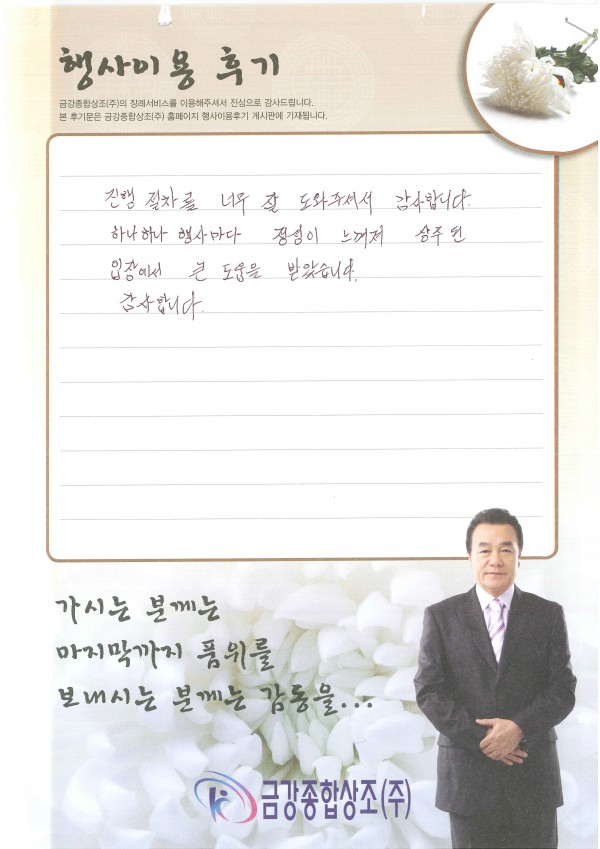 행사이용 후기
금강종합상조(주)의 장례서비스를 이용해주셔서 진심으로 감사드립니다.
본 후기문은 금강종합상조(주) 홈페이지 행사이용후기 게시판에 기재됩니다.
진행 절차를 너무 잘 도와주셔서 감사합니다.
하나하나 행사마다 정성이 느껴져 상주 된
입장에서 큰 도움을 받았습니다.
감사합니다.
가시는 분께는
마지막까지 품위를
보내시는 분께는 감동을...
금강종합상조(주)